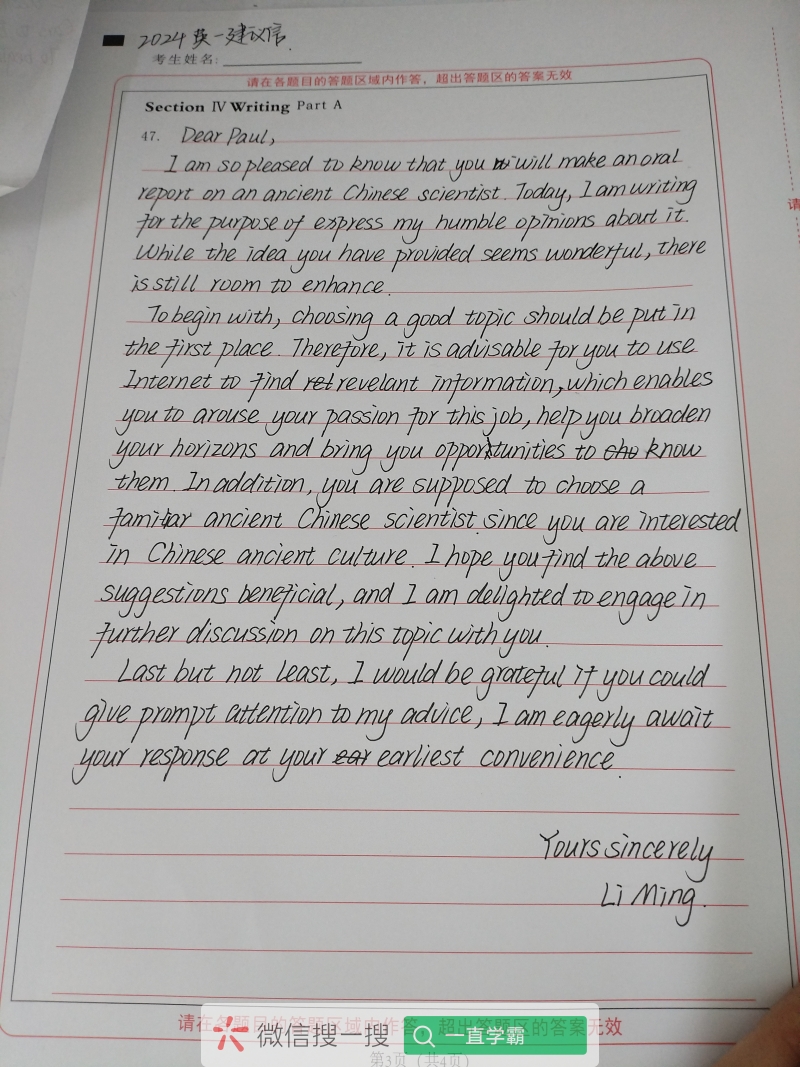 2024 英一建议信.
考生姓名:
请在各题目的答题区域内作答，超出答题区的答案无效
Section Ⅳ Writing Part A
47. Dear Paul,
I am so pleased to know that you will make an oral
report on an ancient Chinese scientist. Today, I am writing
for the purpose of express my humble opinions about it.
While the idea you have provided seems wonderful, there
is still room to enhance.
To begin with, choosing a good topic should be put in
the first place. Therefore, it is advisable for you to use
Internet to find revelant information, which enables
you to arouse your passion for this job, help you broaden
your horizons and bring you opportunities to know
them. In addition, you are supposed to choose a
familiar ancient Chinese scientist since you are interested
in Chinese ancient culture. I hope you find the above
suggestions beneficial, and I am delighted to engage in
further discussion on this topic with you.
Last but not least, I would be grateful if you could
give prompt attention to my advice, I am eagerly await
your response at your earliest convenience.
Yours sincerely
Li Ming.
请在各题目的答题区域内作答，超出答题区的答案无效
微信搜一搜
一直学霸
第3页（共4页）